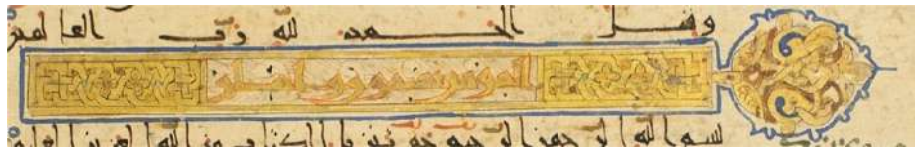 وقيل الحمد لله رب العالمين
المومن
بسم الله الرحمن الرحيم حم تنزيل الكتاب من الله العزيز العليم